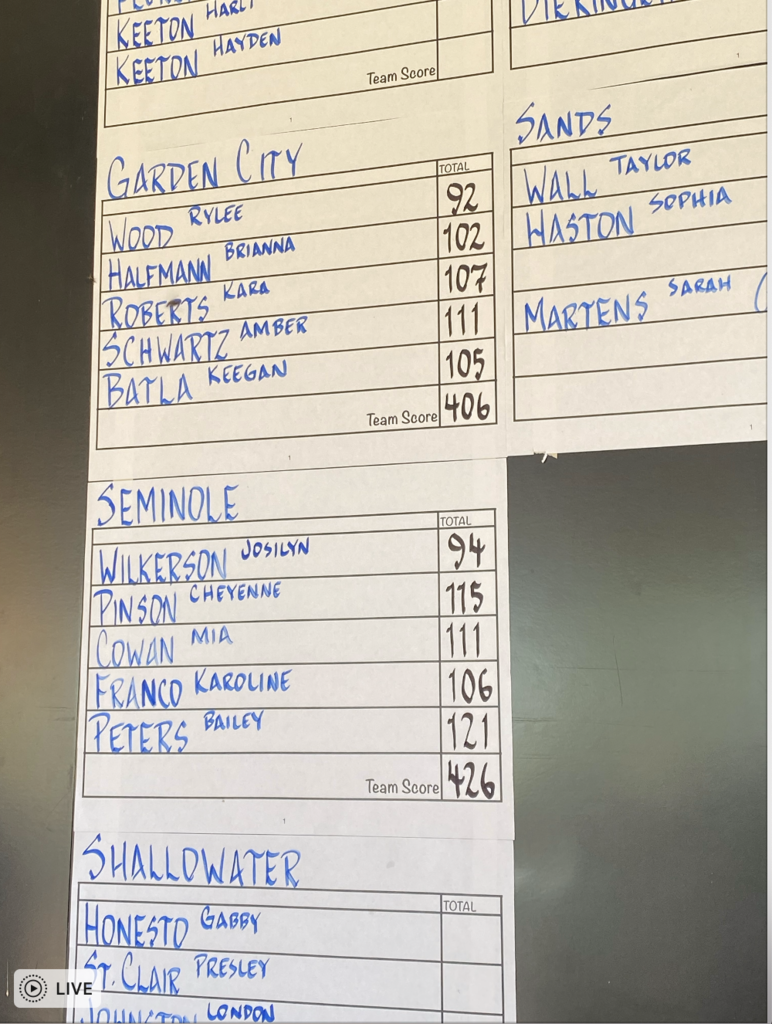 KEETON HARLI
KEETON HAYDEN
Team Score
GARDEN CITY
TOTAL
WOOD RYLEE 92
HALFMANN BRIANNA 102
ROBERTS KARA 107
SCHWARTZ AMBER 111
BATLA KEEGAN 105
Team Score 406
SANDS
WALL TAYLOR
HASTON SOPHIA
MARTENS SARAH (
SEMINOLE
TOTAL
WILKERSON JOSILYN 94
PINSON CHEYENNE 115
COWAN MIA 111
FRANCO KAROLINE 106
PETERS BAILEY 121
Team Score 426
SHALLOWATER
TOTAL
HONESTO GABBY
ST. CLAIR PRESLEY
JOHNSTON LONDON
LIVE